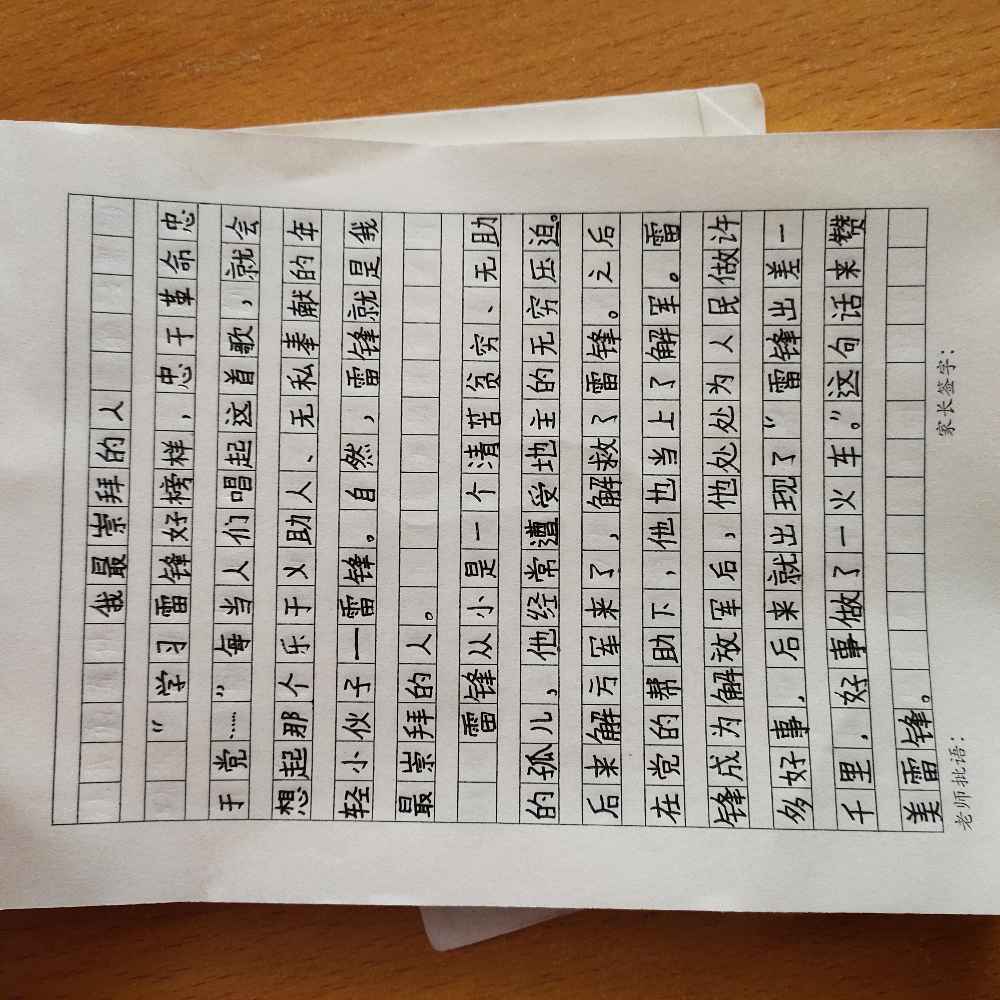 我最崇拜的人
“学习雷锋好榜样，忠于革命忠
于党……”每当人们唱起这首歌，就会
想起那个乐于义助人、无私奉献的年
轻小伙子—雷锋。自然，雷锋就是我
最崇拜的人。
雷锋从小是一个清苦贫穷、无助
的孤儿，他经常遭受地主的无穷压迫。
后来解方军来了，解救了雷锋。之后
在党的帮助下，他也当上了解军。雷
锋成为解放军后，他处处为人民做许
多好事，后来就出现了“雷锋出差一
千里，好事做了一火车。”这句话来赞
美雷锋。
老师批语：
家长签字：